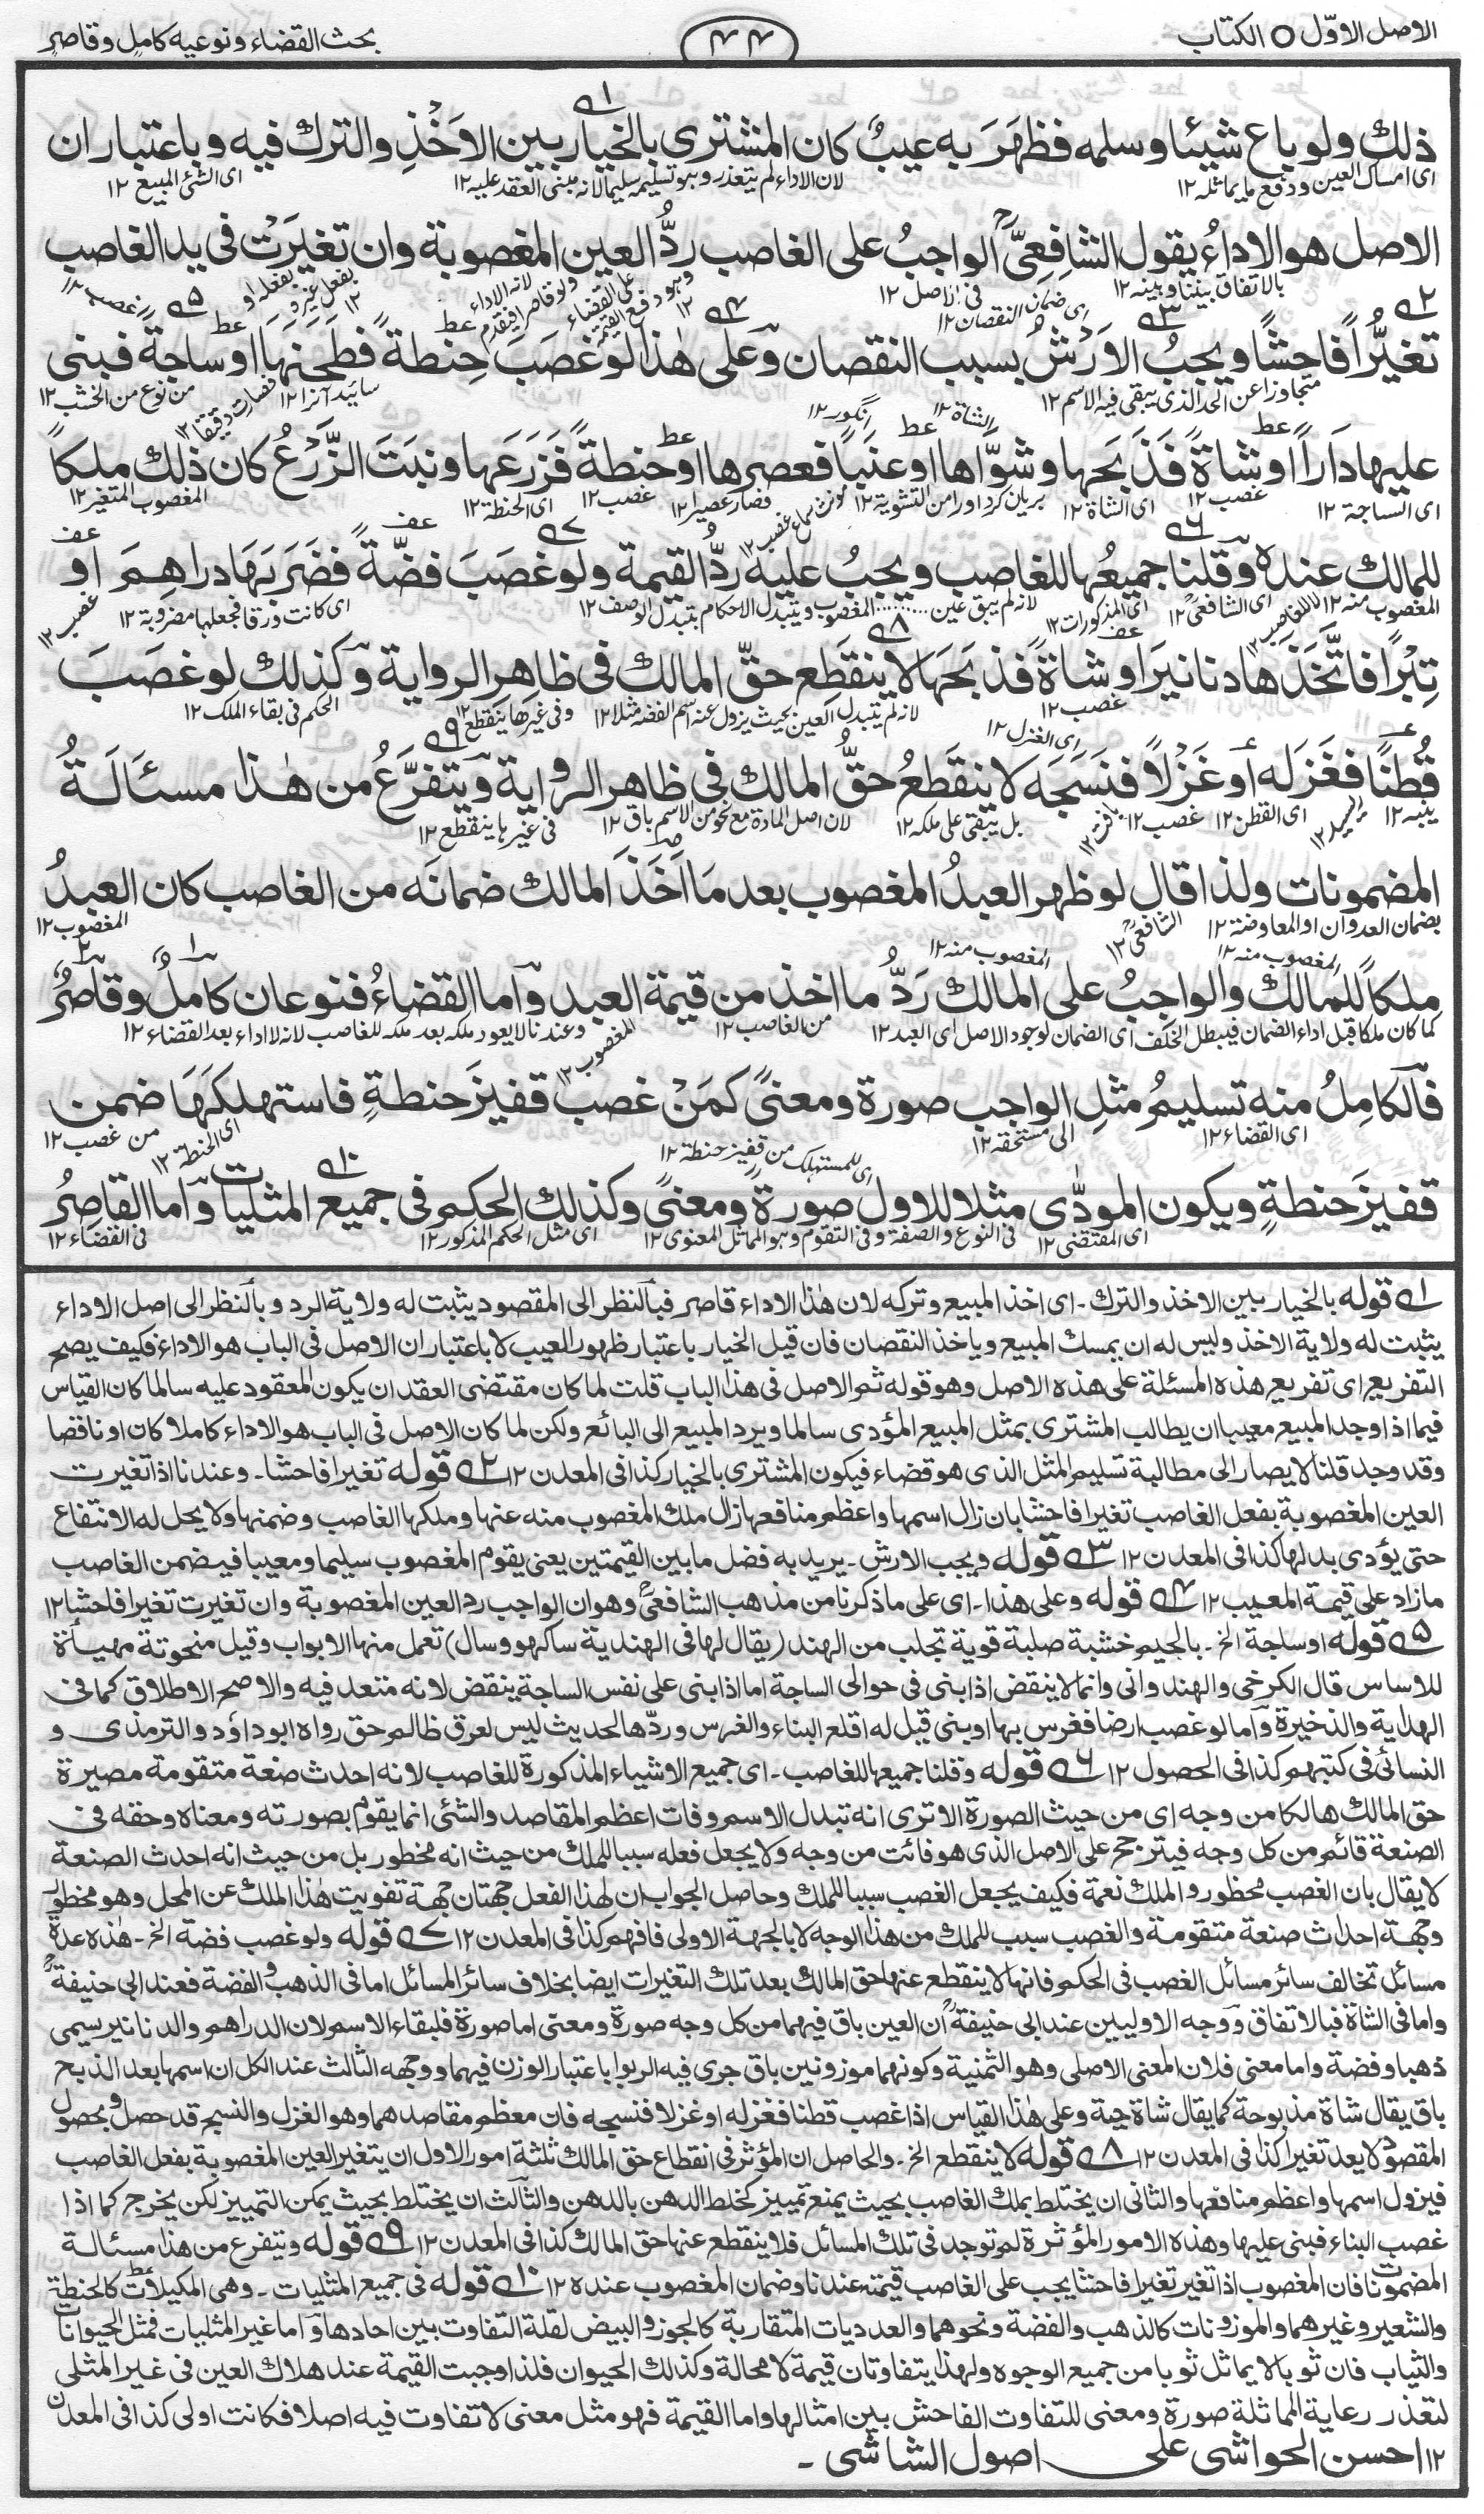 الاصل الاوّل ○ الكتاب
۴۴
بحث القضاء ونوعيه كامل وقاصر
ذلك ولو باع شيئا وسلمه فظهَرَ به عيبٌ كان المشترى بالخيار بين الاَخْذِ والترك فيه وباعتبار ان
اى امساك العين ودفع ما يماثله ۱۲ لان الاداء لم يتعذر وهو تسليمه سليما لانه مبنى العقد عليه ۱۲ اى الشئ المبيع ۱۲
الاصل هو الاداءُ يقول الشافِعِىُّ الواجبُ على الغاصب ردُّ العين المغصوبة وان تغيَرَتْ فى يد الغاصب
بالاتفاق بيننا وبينه ۱۲ فى الاصل ۱۲ اى ضمان النقصان ۱۲
تغيُّراً فاحِشًا ويجبُ الاَرْشُ بسبب النقصان وعلى هٰذا لو غصَبَ حِنطةً فطَحَنَهَا او ساجةً فبنى
متجاوزا عن الحد الذى يبقى فيه الاسم ۱۲ سائيد آنرا ۱۲ فصارت دقيقا ۱۲ من نوع من الخشب ۱۲
عليها دَارًا او شاةً فَذَبَحَها وشوَّاها او عنَبًا فعصرها او حنطةً فَزَرَعَها ونبَتَ الزَّرْعُ كان ذلك ملكًا
اى الساجة ۱۲ غصب ۱۲ اى الشاة ۱۲ بريان كرد اورا من التشوية ۱۲ فصار عصيرا ۱۲ غصب ۱۲ اى الحنطة ۱۲ المغصوب المتغير ۱۲
للمالك عنده وقلنا جميعُها للغاصب ويجبُ عليه ردُّ القيمة ولو غصَبَ فضّةً فضَرَبَهَا دراهِمَ او
المغصوب منه ۱۲ اى الشافعىؒ ۱۲ اى المذكورات ۱۲ لانه لم يبق عين المغصوب ويتبدل الاحكام بتبدل الوصف ۱۲ اى كانت ورقا فجعلها مضروبة ۱۲ غصب ۱۲
تِبْرًا فاتَّخَذَهَا دنانيرَ او شاةً فذبَحَهَا لا ينقَطِع حقّ المالك فى ظاهر الرواية وكذلك لو غصَبَ
غصب ۱۲ لانه لم يتبدل العين بحيث يزول عنه اسم الفضه مثلا ۱۲ وفى غيرها ينقطع ۱۲ الحكم فى بقاء الملك ۱۲
قُطنًا فغَزَله او غَزْلاً فنسَجَه لا ينقطعُ حقُّ المالك فى ظاهر الرواية ويتفرَّعُ من هٰذا مسئَالَةُ
پنبه ۱۲ اى القطن ۱۲ غصب ۱۲ بل يبقى على ملكه ۱۲ لان اصل المادة مع نحو من الاسم باق ۱۲ فى غيرها ينقطع ۱۲
المضمونات ولذا قال لو ظهر العبدُ المغصوب بعد مَا اَخَذَ المالك ضمانَه من الغاصب كان العبدُ
بضمان العدوان او المعاوضة ۱۲ الشافعىؒ ۱۲ المغصوب منه ۱۲ المغصوب منه ۱۲ المغصوب ۱۲
ملكاً للمالك والواجبُ على المالك رَدُّ ما اخذ من قيمة العبد وآما القضاءُ فنوعان كاملٌ وقاصرٌ
كما كان ملكا قبل اداء الضمان فيبطل الخلف اى الضمان لوجود الاصل اى العبد ۱۲ من الغاصب ۱۲ المغصوب ۱۲ وعندنا لا يعود ملكه بعد ملكه للغاصب لانه لا اداء بعد القضاء ۱۲
فآلكامِلُ منه تسليمُ مثلِ الواجب صورة ومعنىً كمَنْ غصب قفيزَ حنطةٍ فاستهلكَهَا ضمن
اى القضاء ۱۲ الى مستحقه ۱۲ اى للمستهلك من قفيز حنطة ۱۲ اى الحنطة ۱۲ من غصب ۱۲
قفيزَ حنطةٍ ويكون المودّٰى مثلا للاول صورة ومعنىً وكذلك الحكم فى جميع المثليات وآما القاصِرُ
اى المقتضى ۱۲ فى النوع والصفة وفى التقوم وهو المماثل المعنوى ۱۲ اى مثل الحكم المذكور ۱۲ فى القضاء ۱۲
۱ قوله بالخيار بين الاخذ والترك۔ اى اخذ المبيع وتركه لان هٰذا الاداء قاصر فبآلنظر الى المقصود يثبت له ولاية الرد وبآلنظر الى اصل الاداء
يثبت له ولاية الاخذ وليس له ان يمسك المبيع وياخذ النقصان فان قيل الخيار باعتبار ظهور العيب لا باعتبار ان الاصل فى الباب هو الاداء فكيف يصح
التفريع اى تفريع هذه المسئلة على هذه الاصل وهو قوله ثم الاصل فى هذا الباب قلت لما كان مقتضى العقد ان يكون المعقود عليه سالما كان القياس
فيما اذا وجد المبيع معيبا ان يطالب المشترى بمثل المبيع المؤدى سالما ويرد المبيع الى البائع ولكن لما كان الاصل فى الباب هو الاداء كاملا كان او ناقصا
وقد وجد قلنا لا يصار الى مطالبة تسليم المثل الذى هو قضاء فيكون المشترى بالخيار كذا فى المعدن ۱۲ ۲ قوله تغيرا فاحشا۔ وعندنا اذا تغيرت
العين المغصوبة بفعل الغاصب تغيرا فاحشا بان زال اسمها واعظم منافعها زال ملك المغصوب منه عنها وملكها الغاصب وضمنها ولا يحل له الانتفاع
حتى يؤدى بدلها كذا فى المعدن ۱۲ ۳ قوله ويجب الارش۔ يريد به فضل ما بين القيمتين يعنى يقوم المغصوب سليما ومعيبا فيضمن الغاصب
ما زاد على قيمة المعيب ۱۲ ۴ قوله وعلى هذا۔ اى على ما ذكرنا من مذهب الشافعىؒ وهو ان الواجب رد العين المغصوبة وان تغيرت تغيرا فاحشا ۱۲
۵ قوله او ساجة الخ۔ بالجيم خشبة صلبة قوية تجلب من الهند (يقال لها فى الهندية ساكهو وسال) تعمل منها الابواب وقيل منحوتة مهيأة
للاساس قال الكرخى والهندوانى وانما لا ينقض اذا بنى فى حوالى الساجة اما اذا بنى على نفس الساجة ينقض لانه متعد فيه والاصح الاطلاق كما فى
الهداية والذخيرة وآما لو غصب ارضا فغرس بها او بنى قيل له اقلع البناء والغرس وردها لحديث ليس لعرق ظالم حق رواه ابو داؤد والترمذى و
النسائى فى كتبهم كذا فى الحصول ۱۲ ۶ قوله وقلنا جميعها للغاصب۔ اى جميع الاشياء المذكورة للغاصب لانه احدث صنعة متقومة مصيرة
حق المالك هالكا من وجه اى من حيث الصورة الا ترى انه تبدل الاسم وفات اعظم المقاصد والشئ انما يقوم بصورته ومعناه وحقه فى
الصنعة قائم من كل وجه فيترجح على الاصل الذى هو فائت من وجه ولا يجعل فعله سببا للملك من حيث انه محظور بل من حيث انه احدث الصنعة
لا يقال بان الغصب محظور والملك نعمة فكيف يجعل الغصب سببا للملك وحاصل الجواب ان لهذا الفعل جهتان جهة تفويت هٰذا الملك عن المحل وهو محظور
وجهة احداث صنعة متقومة والغصب سبب للملك من هذا الوجه لا بالجهة الاولى فافهم كذا فى المعدن ۱۲ ۷ قوله ولو غصب فضة الخ۔ هٰذه عدة
مسائل تخالف سائر مسائل الغصب فى الحكم فانها لا ينقطع عنها حق المالك بعد تلك التغيرات ايضا بخلاف سائر المسائل اما فى الذهب والفضة فعند ابى حنيفةؒ
واما فى الشاة فبالاتفاق ووجه الاوليين عند ابى حنيفةؒ ان العين باق فيهما من كل وجه صورة ومعنى اما صورة فلبقاء الاسم لان الدراهم والدنانير يسمى
ذهبا وفضة واما معنى فلان المعنى الاصلى وهو الثمنية وكونهما موزونين باق جرى فيه الربوا باعتبار الوزن فيهما ووجهه الثالث عند الكل ان اسمها بعد الذبح
باق يقال شاة مذبوحة كما يقال شاة حية وعلى هٰذا القياس اذا غصب قطنا فغزله او غزلا فنسجه فان معظم مقاصدهما وهو الغزل والنسج قد حصل وبحصول
المقصود لا يعد تغيرا كذا فى المعدن ۱۲ ۸ قوله لا ينقطع الخ۔ والحاصل ان المؤثر فى انقطاع حق المالك ثلثة امور الاول ان يتغير العين المغصوبة بفعل الغاصب
فيزول اسمها واعظم منافعها والثانى ان يختلط بملك الغاصب بحيث يمنع تمييز كخلط الدهن بالدهن والثالث ان يختلط بحيث يمكن التمييز لكن يخرج كما اذا
غصب البناء فبنى عليها وهذه الامور المؤثرة لم توجد فى تلك المسائل فلا ينقطع عنها حق المالك كذا فى المعدن ۱۲ ۹ قوله ويتفرع من هذا مسئالة
المضمونات فان المغصوب اذا تغير تغيرا فاحشا يجب على الغاصب قيمته عندنا وضمان المغصوب عنده ۱۲ ۱۰ قوله فى جميع المثليات۔ وهى المكيلات كالحنطة
والشعير وغيرهما والموزونات كالذهب والفضة ونحوهما والعدديات المتقاربة كالجوز والبيض لقلة التفاوت بين احادها وآما غير المثليات فمثل الحيوانات
والثياب فان ثوبا لا يماثل ثوبا من جميع الوجوه ولهذا يتفاوتان قيمة لا محالة وكذلك الحيوان فلذا وجبت القيمة عند هلاك العين فى غير المثلى
لتعذر رعاية المماثلة صورة ومعنى للتفاوت الفاحش بين امثالها واما القيمة فهو مثل معنى لا تفاوت فيه اصلا فكانت اولى كذا فى المعدن
۱۲ احسن الحواشى على اصول الشاشى ۔